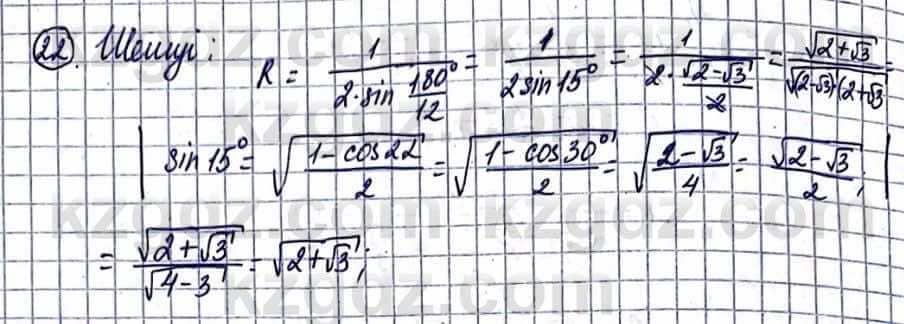 22. Шешуі:
R = 1/(2·sin 180°/12) = 1/(2sin15°) = 1/(2·√(2-√3)/2) = √(2+√3)/√((2-√3)(2+√3) =
| sin15° = √((1-cos22)/2) = √((1-cos30°)/2) = √((2-√3)/4) = √(2-√3)/2; |
= √(2+√3)/√(4-3) = √(2+√3);
kzgdz.com